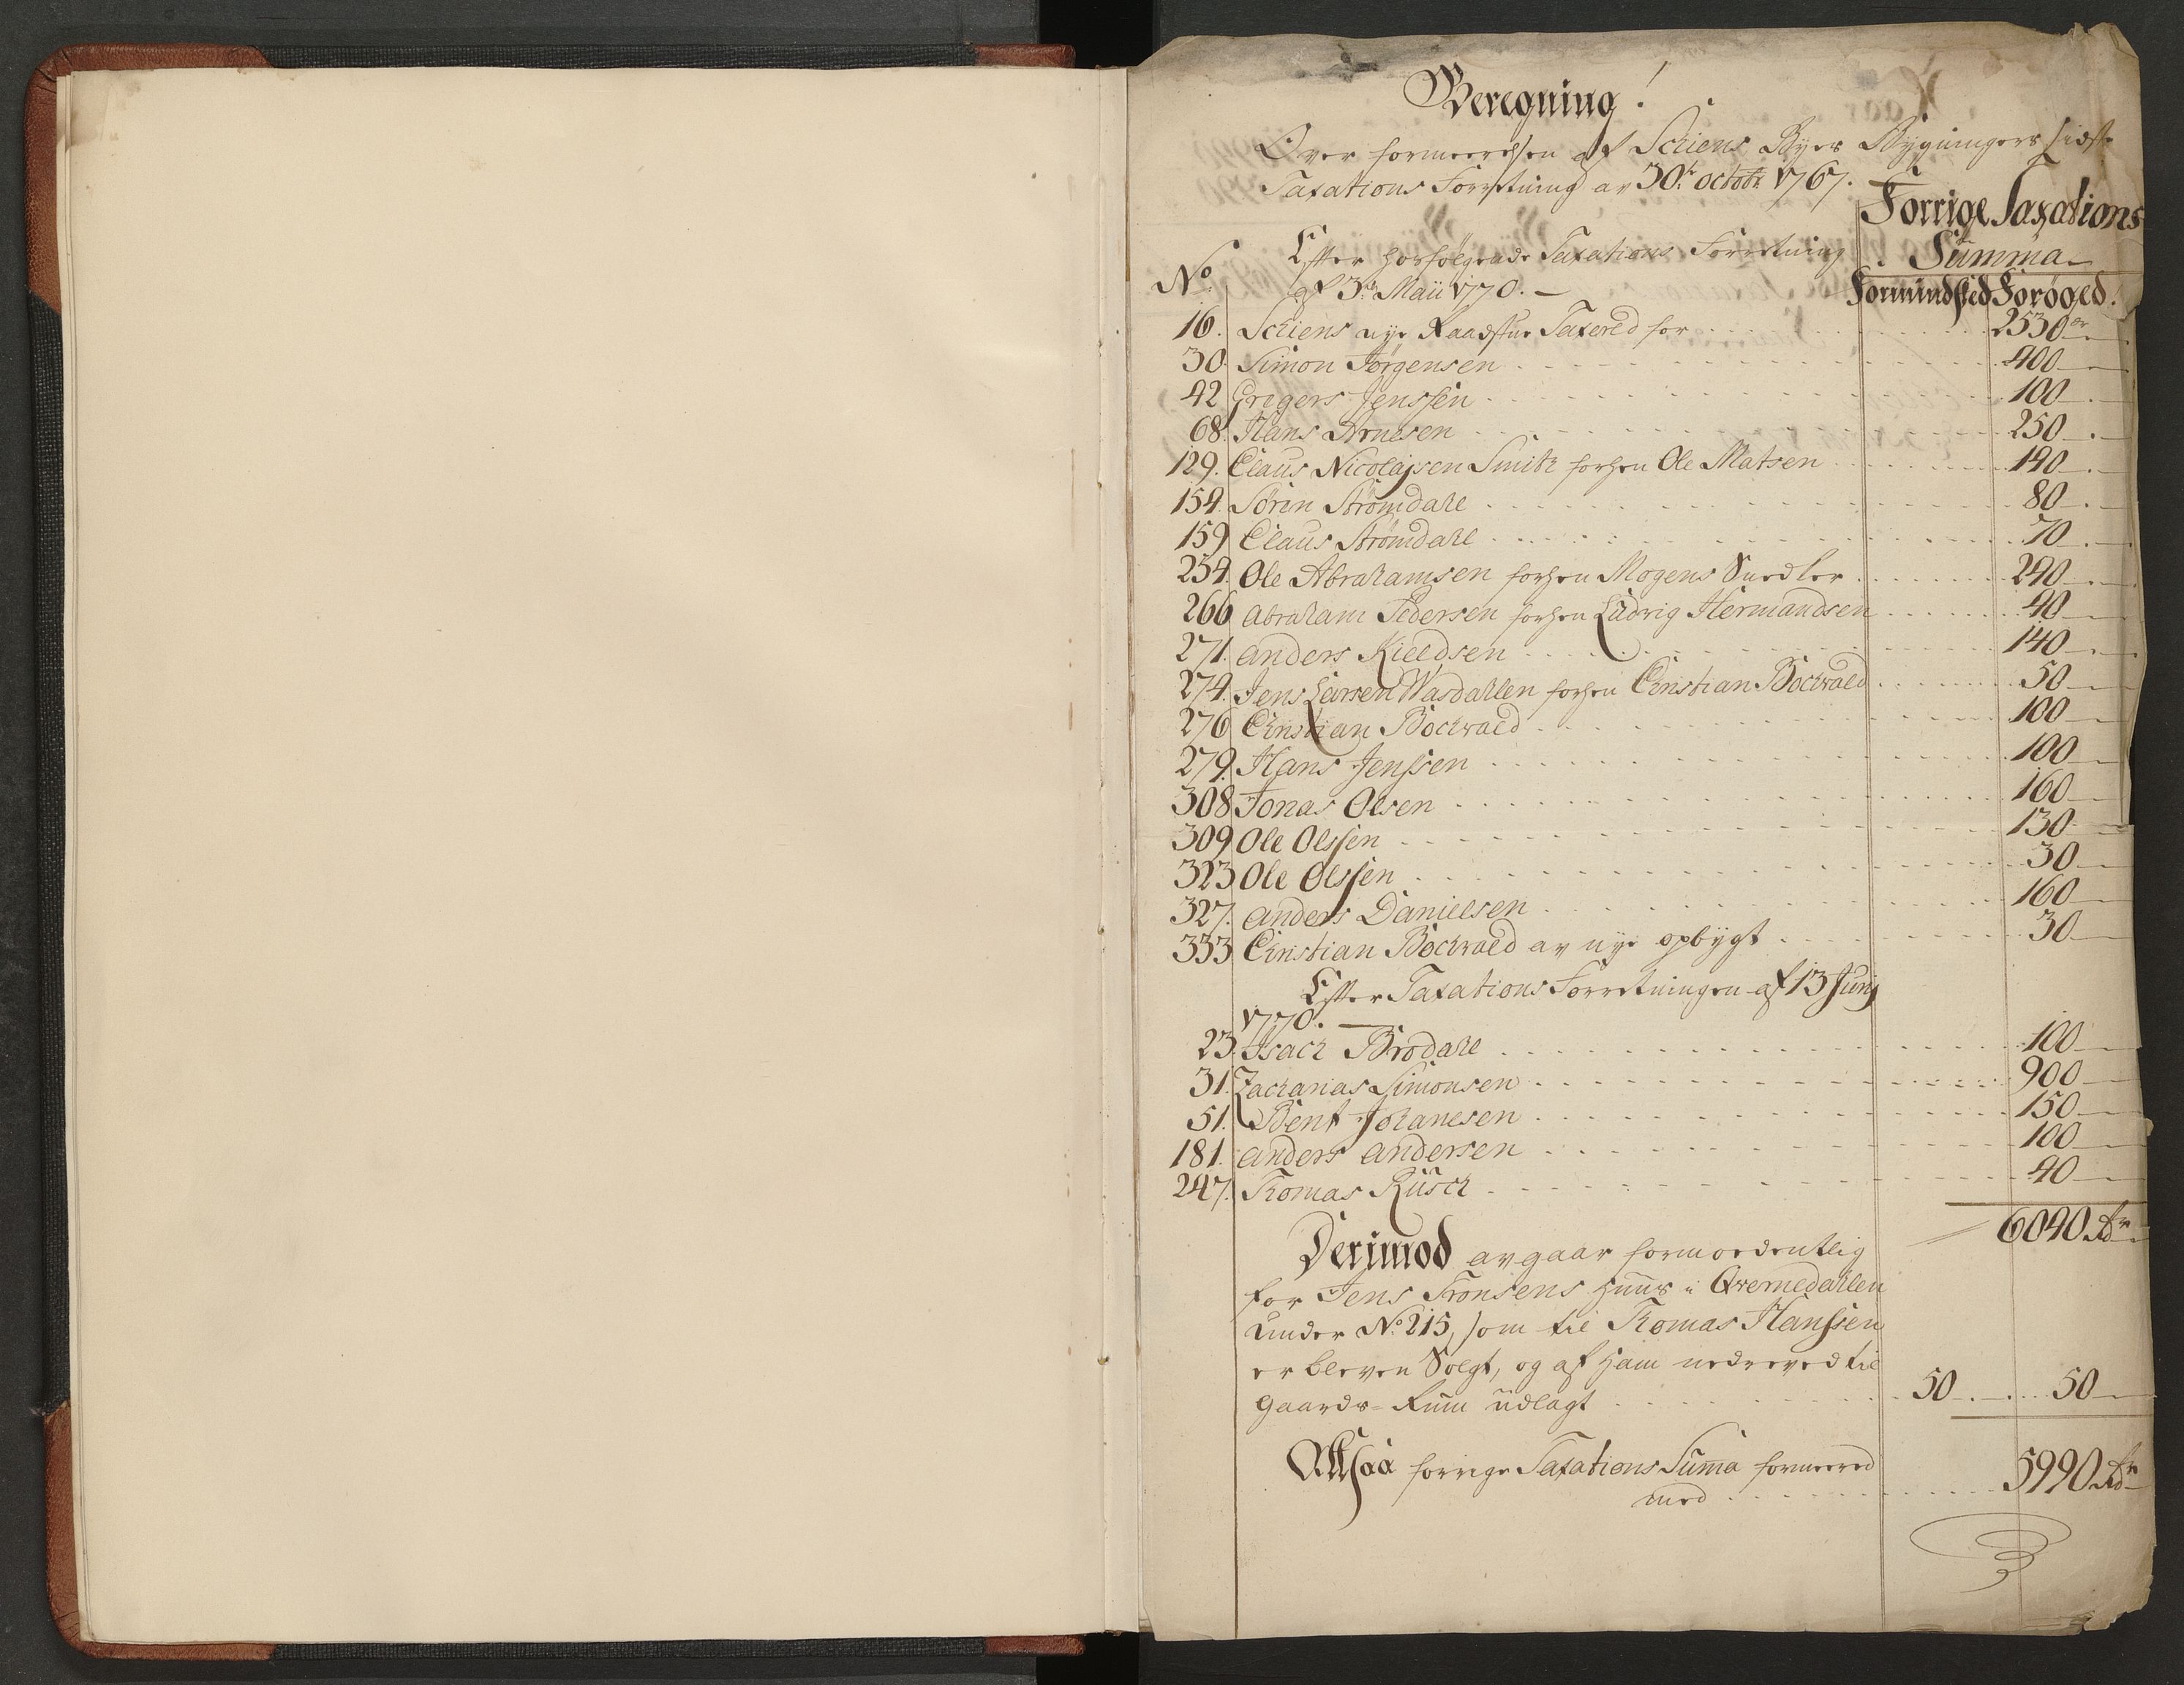 Beregning!
Over formeerelsen af Schiens Byes Bygningers sidste
Taxations Forretning av 30.t octobr 1767.
Forrige Taxations
Summa
No.
Efter hosfølgende Taxations Forretning
af 3.t Maii 1770.
Formindsked Forøged.
16. Schiens nye Raadstue Taxered for 2530
30. Simon Jørgensen 400
42 Gregers Jenssen 100
68. Hans Arnesen 250
129. Claus Nicolajsen Smith forhen Ole Matsen 140
154. Sören Strömdahl 80
159 Claus Strömdahl 70
254. Ole Abrahamsen forhen Mogens Snedker 240
266 Abraham Pedersen forhen Ludvig Hermandsen 40
271. Anders Kieldsen 140
274. Jens Larsen Wasdahlen forhen Christian Bochwald 50
276 Christian Bochwald 100
279. Hans Jenssen 100
308 Jonas Olsen 160
309 Ole Olssen 130
323 Ole Olssen 30
327. Anders Danielsen 160
333 Christian Bochwald av nye opbygt 30
Efter Taxations Forretningen af 13 Junj
1770.
23. Isach Brodahl 100
31. Zacharias Simonsen 900
51. Bent Johanesen 150
181. Anders Andersen 100
247. Thomas Rüsch 40
6040 Rdr
Derimod avgaar formoedentlig
for Jens Tronsens Huus i Qvernedahlen
under No. 215, som til Thomas Hanssen
er bleven Solgt, og af ham nedreved til
Gaards-Rum udlagt 50 50
Altsaa forrige Taxations Summa formeered
med 5990 Rdr